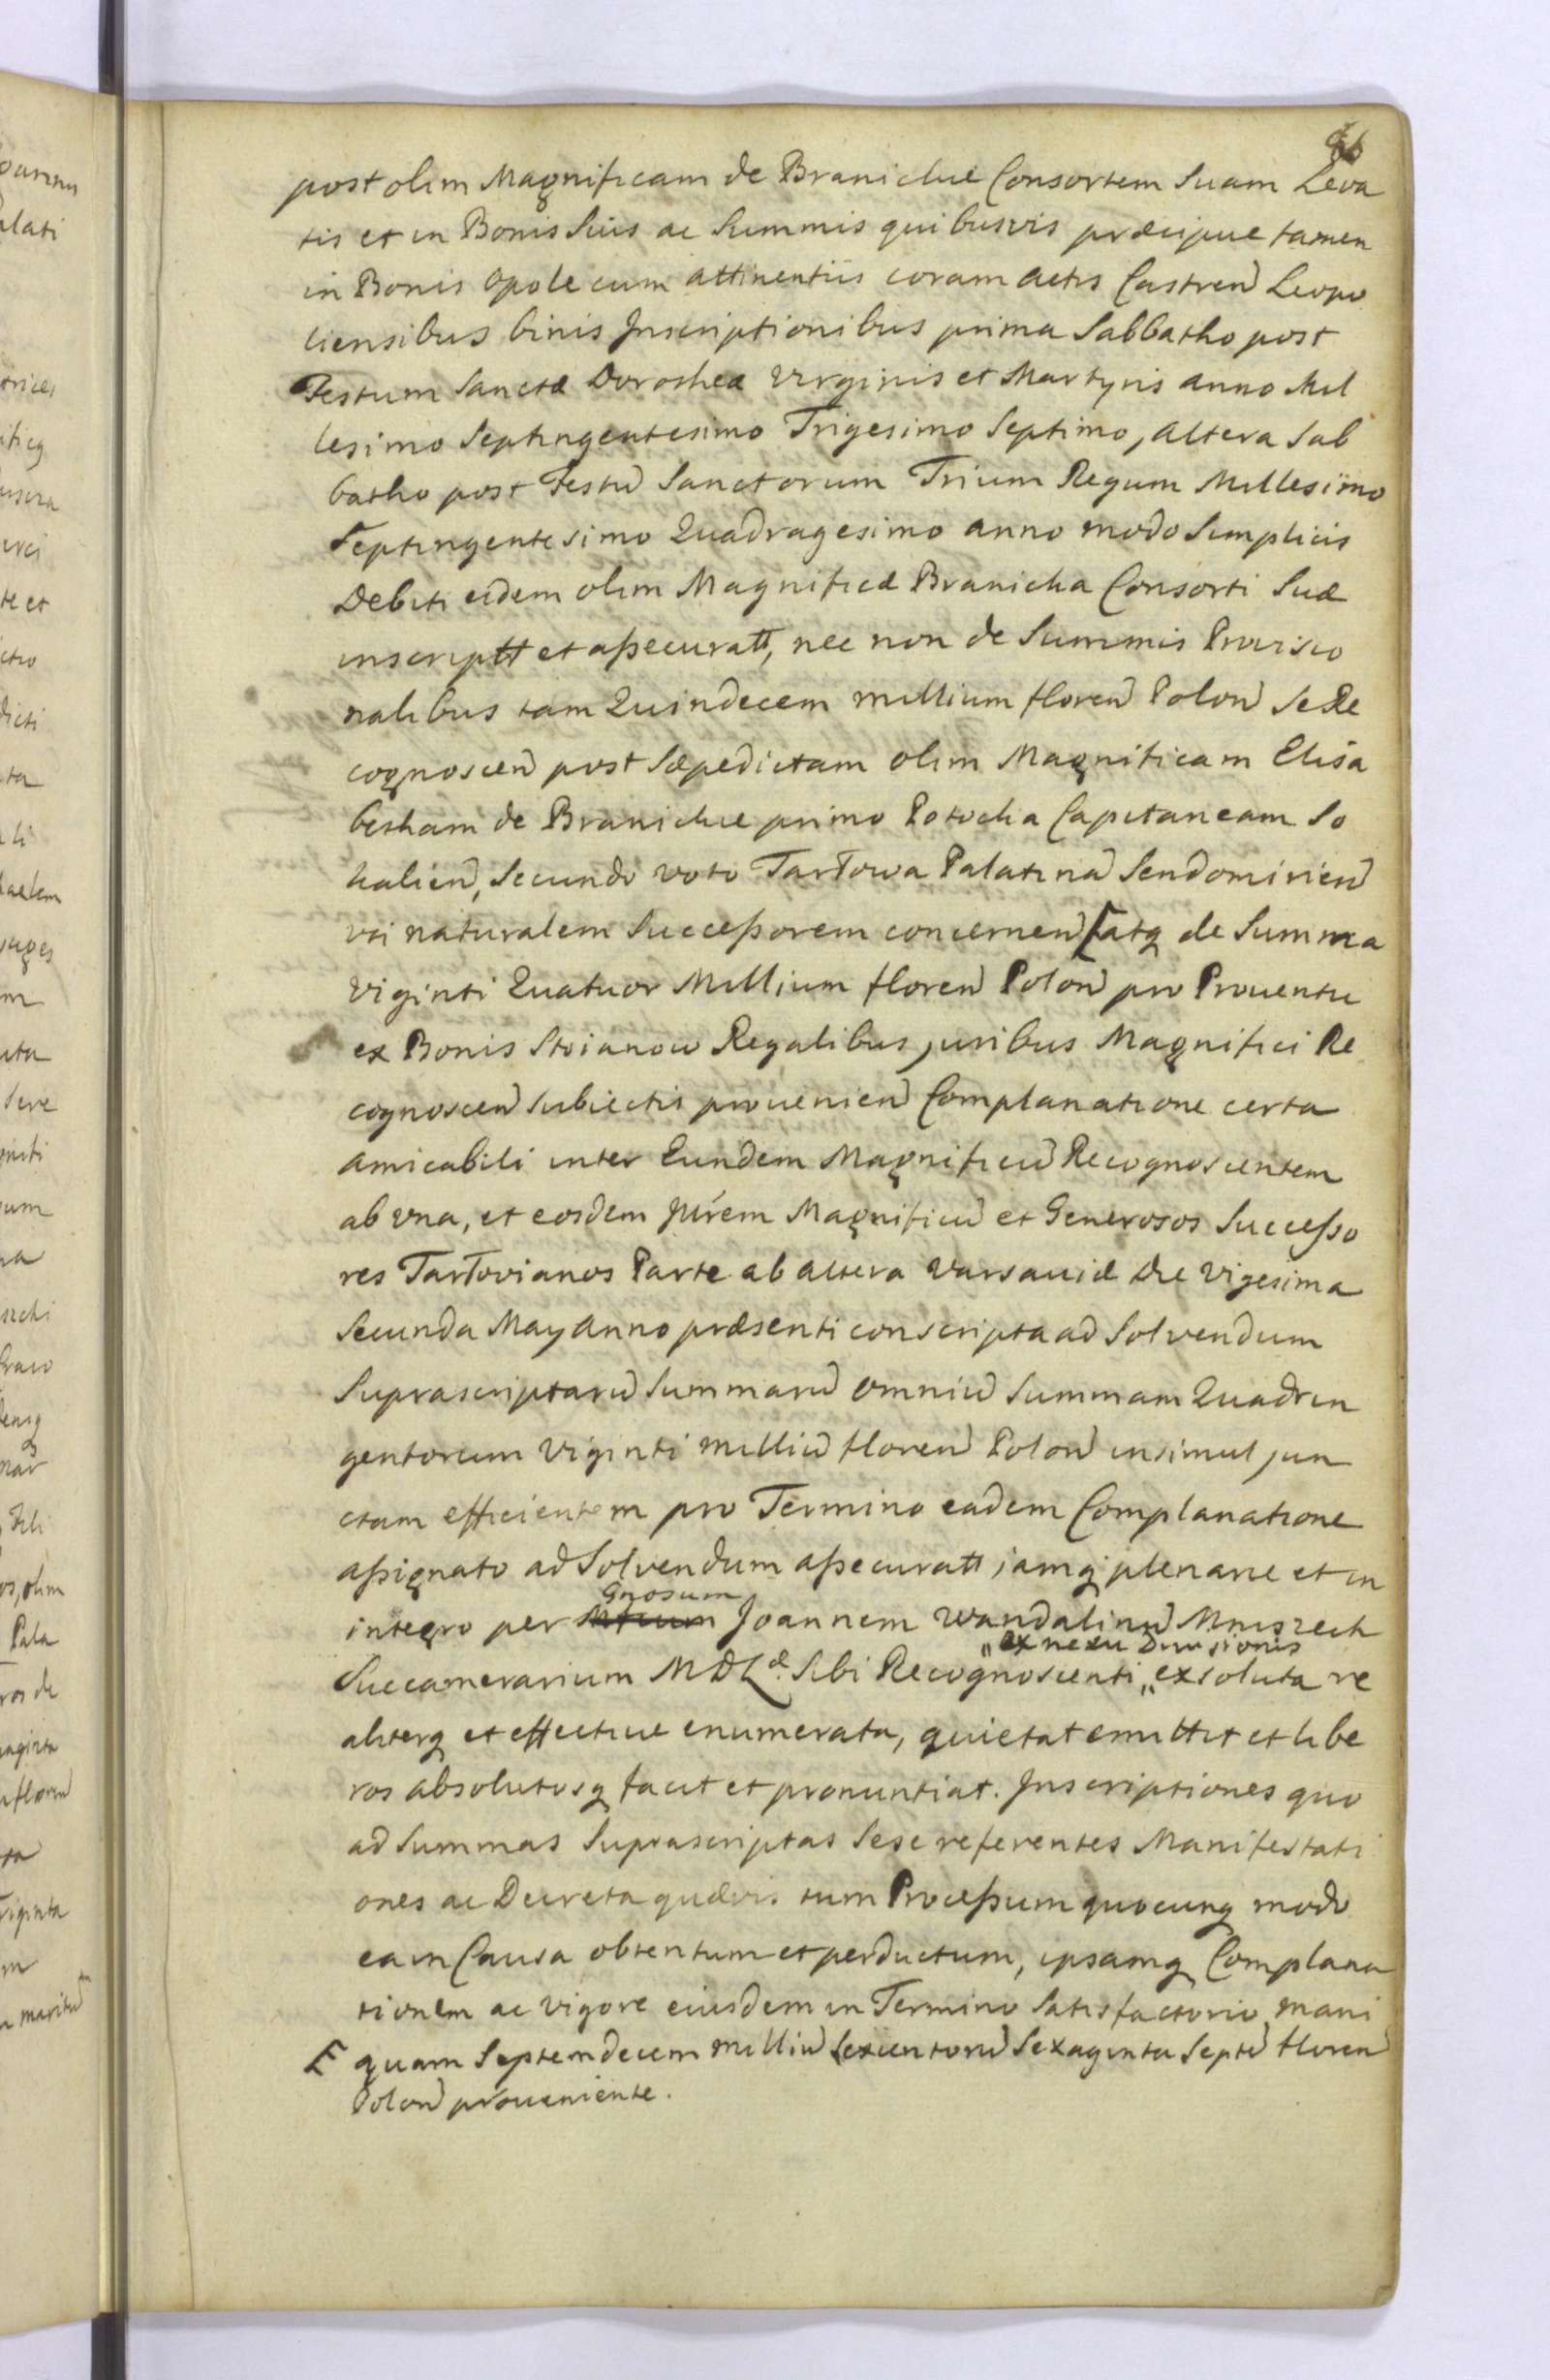 post olim Magnificam de Branickie Consortem Suam Leva
tis et in Bonis Suis ac Summis quibusvis præcipue tamen
in Bonis Opole cum attinentiis coram Actis Castren Leopo
liensibus binis Inscriptionibus prima Sabbatho post
Festum Sanctæ Dorotheæ Virginis et Martyris anno Mil
lesimo Septingentesimo Trigesimo Septimo, altera Sab
batho post Festu Sanctorum Trium Regum Millesimo
Septingentesimo Quadragesimo anno modo Simplicis
Debiti eidem olim Magnificæ Branicka Consorti Suæ
inscriptt et assecuratt, nec non de Summis Proviso
nalibus tam Quindecem millium floren Polon Se Re
cognoscen post Sæpedictam olim Magnificam Elisa
betham de Branickie primo Potocka Capitaneam So
kalien, Secundo voto Tarłowa Palatina Sendomirien
vti naturalem Successorem concernen [atq de Summa
viginti Quatuor Millium floren Polon pro Prouentu
ex Bonis Stoianow Regalibus juribus Magnifici Re
cognoscen Subiectis prouenien Complanatione certa
amicabili inter Eundem Magnificu Recognoscentem
ab vna, et eosdem Jllrem Magnificu et Generosos Successo
res Tarłovianos Parte ab altera Varsaviæ Die Vigesima
Secunda May Anno præsenti conscripta ad Solvendum
Suprascriptaru Summaru omniu Summam Quadrin
gentorum Viginti milliu floren Polon insimul jun
ctam efficientem pro Termino eadem Complanatione
assignato ad Solvendum assecuratt jamq plenarie et in
Gnosum
integro per Joannem Wandalinu Mniszech
„ex nexu Diuisionis
Succamerarium MDLæ. Sibi Recognoscenti „exsoluta re
aliterq et effectiue enumerata, quietat emittit et libe
ros absolutosq facit et pronuntiat. Inscriptiones quo
ad Summas Suprascriptas Sese referentes Manifestati
ones ac Decreta quævis tum Processum quocunq modo
ea in Causa obtentum et perductum, ipsamq Complana
tionem ac vigore eiusdem in Termino Satisfactorio mani
[ quam Septemdecem milliu Sexcentoru Sexaginta Septe floren
Polon proueniente.